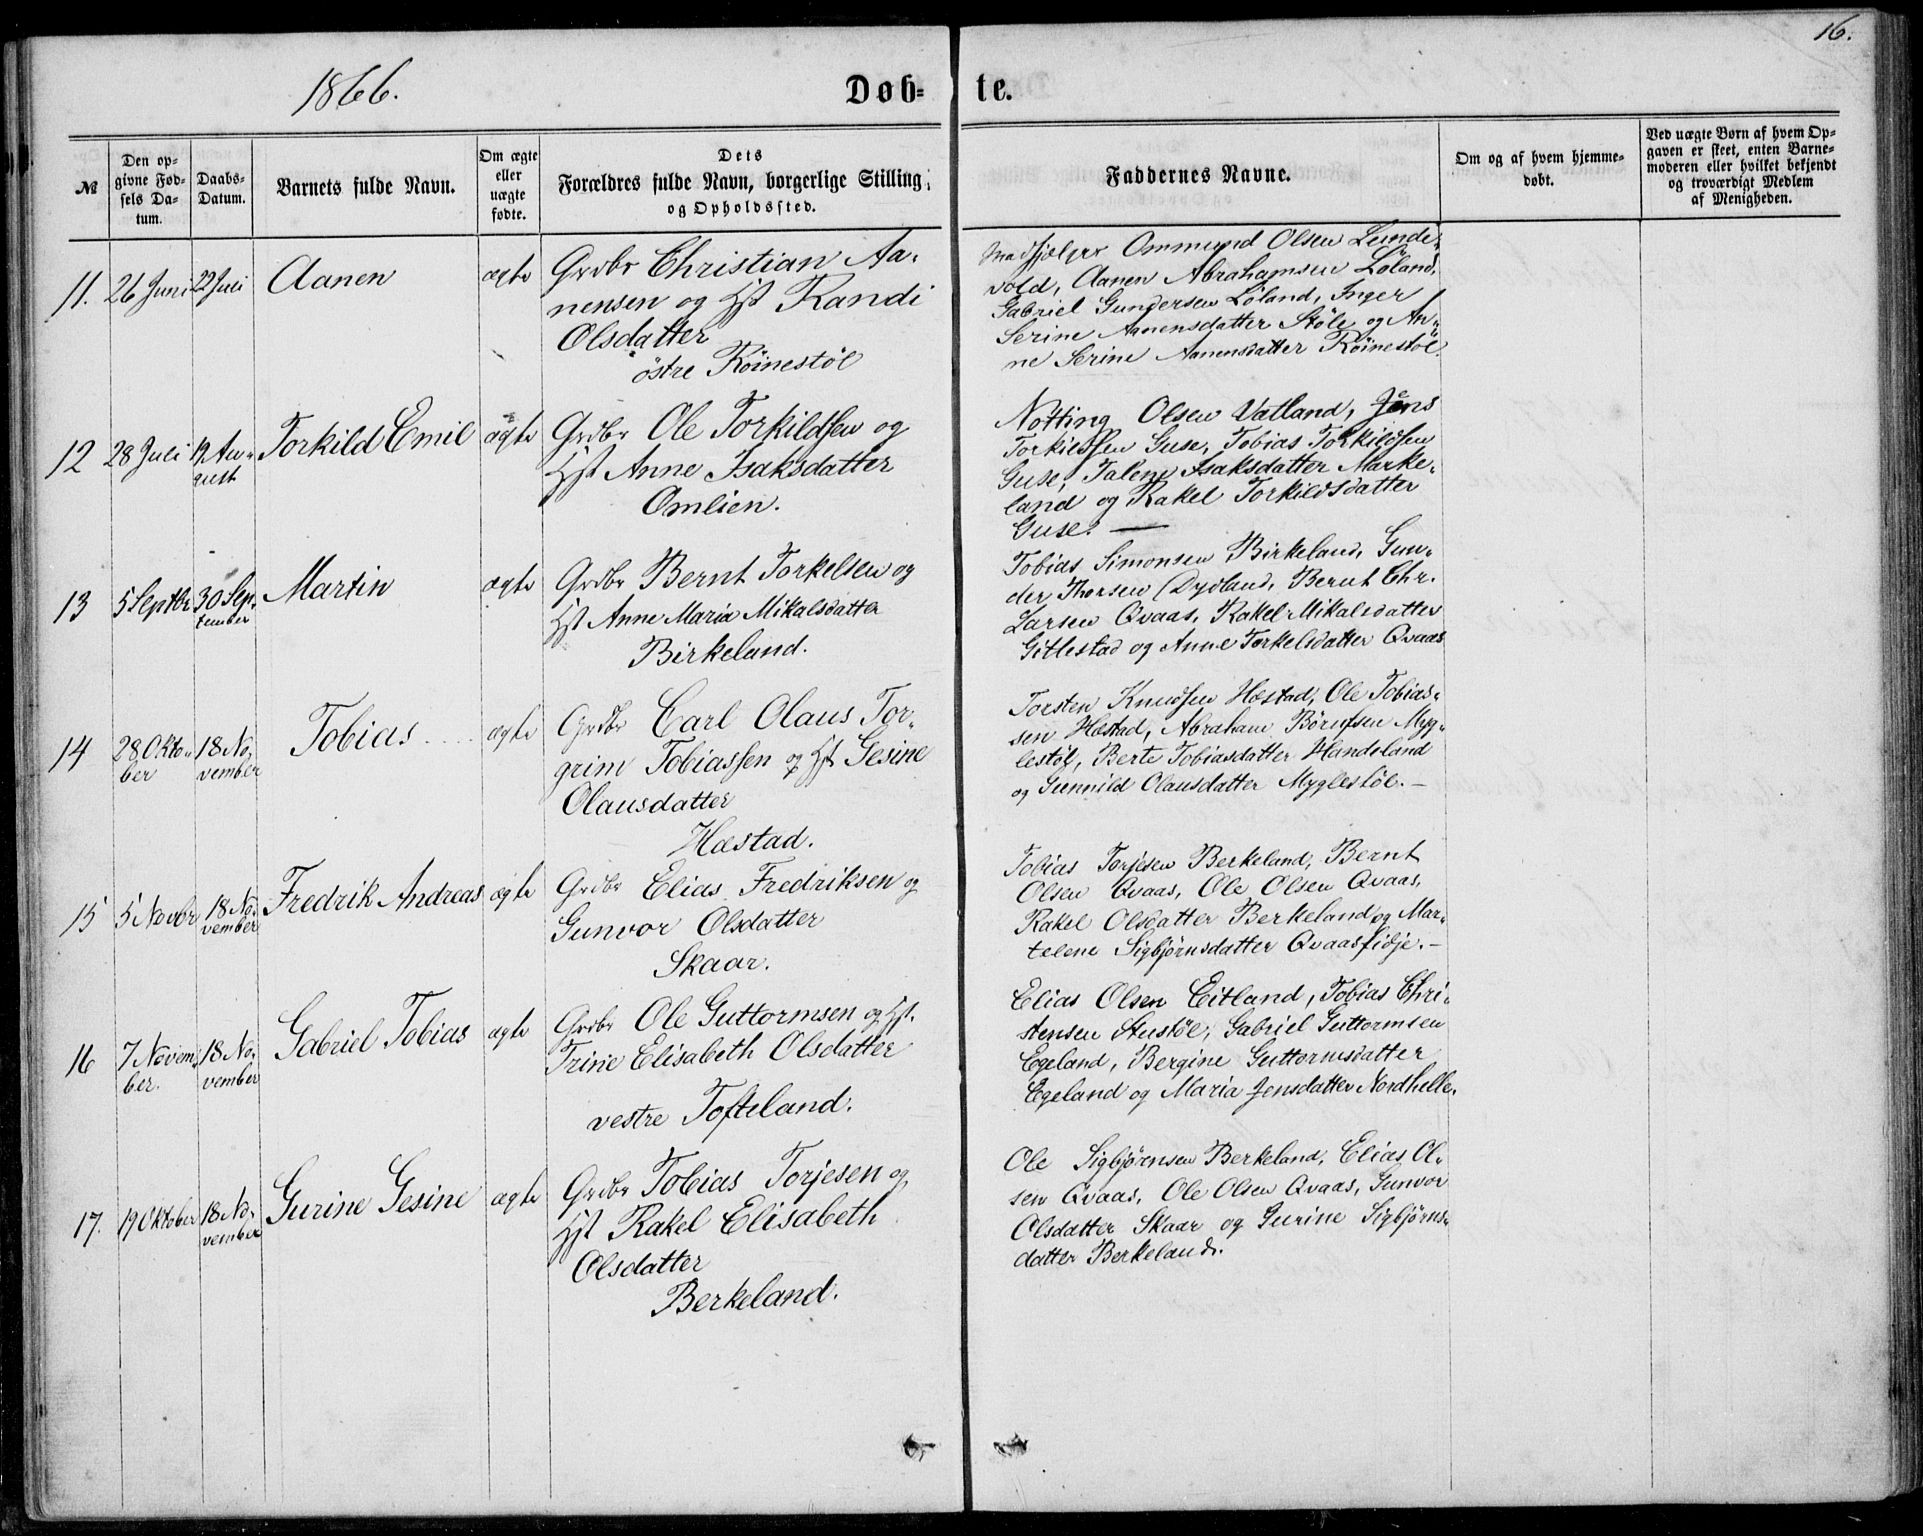 16.
1866.
Døb-
te.
№
Den op-
givne Fød-
sels Da-
tum.
Daabs-
Datum.
Barnets fulde Navn.
Om ægte
eller
uægte
fødte.
Dets
Forældres fulde Navn, borgerlige Stilling,
og Opholdssted.
Faddernes Navne.
Om og af hvem hjemme-
døbt.
Ved uægte Børn af hvem Op-
gaven er skeet, enten Barne-
moderen eller hvilket bekjendt
og troværdigt Medlem
af Menigheden.
11.
26 Juni
22 Juli
Aanen
ægte
Grdbr Christian Aa-
nensen og Hst Randi
Olsdatter
östre Röinestöl
Madhjelper Ommund Olsen Lunde-
vold, Aanen Abrahamsen Løland,
Gabriel Gundersen Løland, Inger
Serine Aanensdatter Støle og An-
ne Serine Aanensdatter Röinestöl.
12
28 Juli
12 Au-
gust
Torkild Emil
ægte
Grdbr Ole Torkildsen og
Hst Anne Isaksdatter
Omlien.
Notting Olsen Vatland, Jens
Torkildsen Guse, Tobias Torkildsen
Guse, Talene Isaksdatter Marke-
land og Rakel Torkildsdatter
Guse. —
13
5 Septbr
30 Sep-
tember
Martin
ægte
Grdbr Bernt Torkelsen og
Hst Anne Maria Mikalsdatter
Birkeland.
Tobias Simonsen Birkeland, Gun-
der Thorsen Dydland, Bernt Chr.
Larsen Qvaas, Rakel Mikalsdatter
Gitlestad og Anne Torkelsdatter Qvaas
14
28 Okto-
ber
18 No-
vember
Tobias
ægte
Grdbr Carl Olaus Tor-
grim Tobiassen og Hst Gesine
Olausdatter
Hæstad.
Torsten Knudsen Hæstad, Ole Tobias-
sen Hæstad, Abraham Børufsen Myg-
lestöl, Berte Tobiasdatter Handeland
og Gunnild Olausdatter Myglestöl. —
15
5 Novbr
18 No-
vember
Fredrik Andreas
ægte
Grdbr Elias Fredriksen og
Gunvor Olsdatter
Skaar.
Tobias Torjesen Berkeland, Bernt
Olsen Qvaas, Ole Olsen Qvaas,
Rakel Olsdatter Berkeland og Mar-
telene Sigbjørnsdatter Qvaasfidje. —
16
7 Novem-
ber.
18 No-
vember
Gabriel Tobias
ægte
Grdbr Ole Guttormsen og Hst.
Trine Elisabeth Olsdatter
vestre Tofteland.
Elias Olsen Eitland, Tobias Chri-
stensen Stustöl, Gabriel Guttormsen
Egeland, Bergine Guttormsdatter
Egeland og Maria Jensdatter Nordhelle.
17.
19 Oktober
18 No-
vember
Gurine Gesine
ægte
Grdbr Tobias Torjesen og
Hst Rakel Elisabeth
Olsdatter
Berkeland.
Ole Sigbjørnsen Berkeland, Elias Ol-
sen Qvaas, Ole Olsen Qvaas, Gunvor
Olsdatter Skaar og Gurine Sigbjørns-
datter Berkeland.